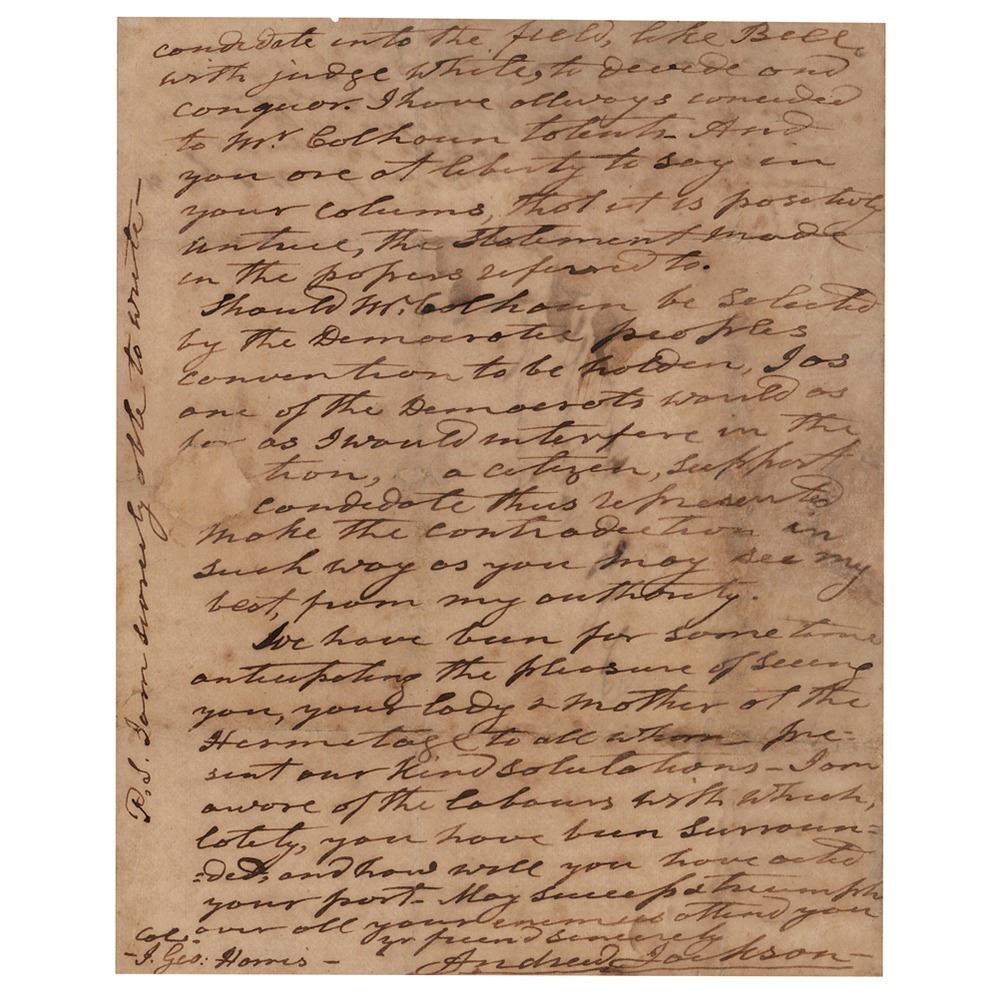 candidate into the field, like Bell,
with judge White, to devide and
conquor. I have allways conceded
to Mr Calhoun talents. And
you are at liberty to say in
your colums, that it is positively
untrue, the Statement made
in the papers referred to.
Should Mr. Calhoun be selected
by the Democratic peoples
convention to be holden, I as
one of the Democrats would as
far as I would interfere in the
tion, a citizen, support
candidate thus represented
make the contradiction in
such way as you may see
my
best, from my authority.
We have been for some time
anticipating the pleasure of seeing
you, your lady & mother at the
Hermitage to all whom pre-
sent our kind salutations - I am
aware of the labours with which,
lately, you have been surroun=
=ded, and how well you have acted
your part - May success & triumph
over all your enemies attend you
yr friend sincerely
Andrew Jackson
Col.
- J. Geo: Harris -
P.S. I am scarcely able to write -